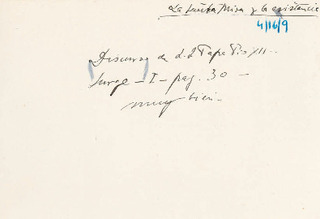 La Santa Misa y la asistencia
4/16/9
Discurso de d.l Papa Pio XII.
Surge - I - pag. 30 -
muy bien.